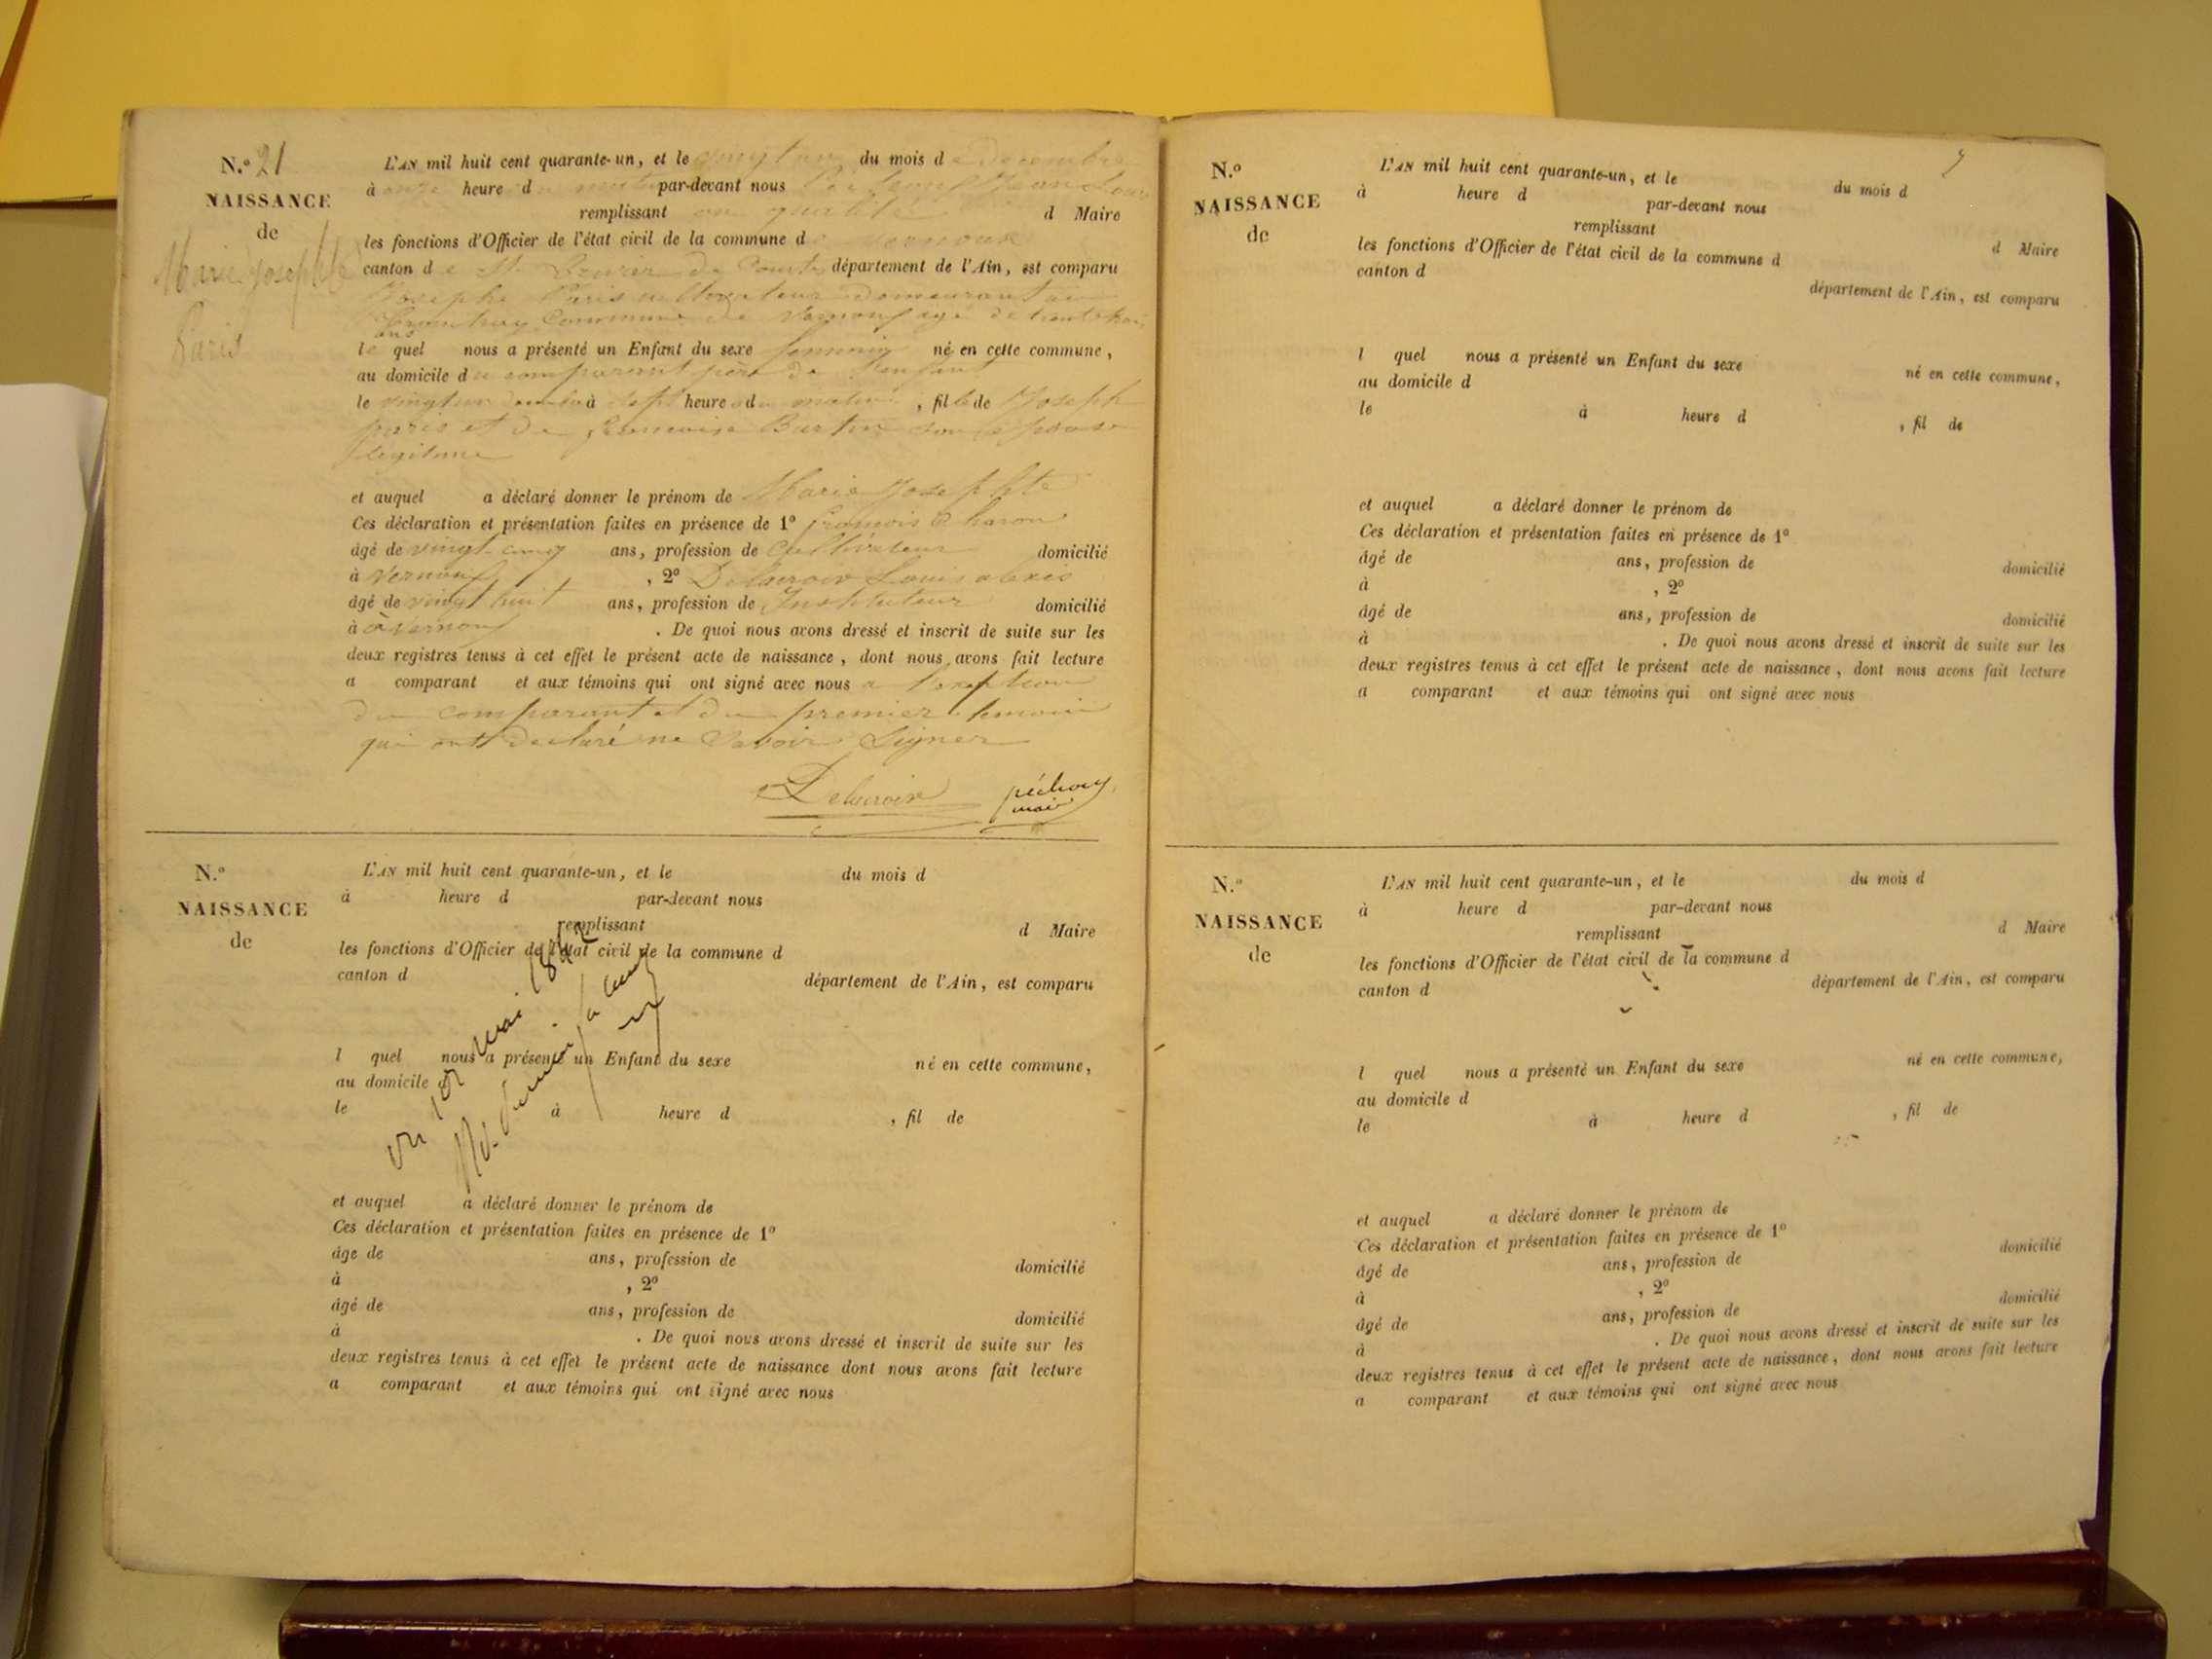 N.º 21
NAISSANCE
de
Marie Josephte
Paris
L'AN mil huit cent quarante-un, et le vingt un du mois de decembre
à onze heure du matin par-devant nous Jean Louis
remplissant en qualité d Maire
les fonctions d'Officier de l'état civil de la commune de Vernoux
canton de St. Trivier de Courtes département de l'Ain, est comparu
Josephe Paris cultivateur domeurant au
commune de Vernoux agé de trente trois
ans
le quel nous a présenté un Enfant du sexe feminin né en cette commune,
au domicile du comparant père de l'enfant
le vingt un à sept heure du matin, fille de Joseph
paris et de francoise Burtin son epouse
legitime
et auquel a déclaré donner le prénom de Marie Josephte
Ces déclaration et présentation faites en présence de 1º francois
âgé de vingt cinq ans, profession de Cultivateur domicilié
à Vernoux, 2º Delacroix Louis alexis
âgé de vingt huit ans, profession de Instituteur domicilié
à à Vernoux. De quoi nous avons dressé et inscrit de suite sur les
deux registres tenus à cet effet le présent acte de naissance, dont nous avons fait lecture
a comparant et aux témoins qui ont signé avec nous a l'exeption
du comparant et du premier temoin
qui ont declaré ne Savoir Signer
Delacroix
maire
N.º
NAISSANCE
de
L'AN mil huit cent quarante-un, et le du mois d
à heure d par-devant nous
remplissant d Maire
les fonctions d'Officier de l'état civil de la commune d
canton d département de l'Ain, est comparu
l quel nous a présenté un Enfant du sexe né en cette commune,
au domicile d
le à heure d , fil de
vu mai 1842
et auquel a déclaré donner le prénom de
Ces déclaration et présentation faites en présence de 1º
âge de ans, profession de domicilié
à , 2º
âgé de ans, profession de domicilié
à . De quoi nous avons dressé et inscrit de suite sur les
deux registres tenus à cet effet le présent acte de naissance dont nous avons fait lecture
a comparant et aux témoins qui ont signé avec nous
N.º
NAISSANCE
de
L'AN mil huit cent quarante-un, et le du mois d
à heure d par-devant nous
remplissant d Maire
les fonctions d'Officier de l'état civil de la commune d
canton d département de l'Ain, est comparu
l quel nous a présenté un Enfant du sexe né en cette commune,
au domicile d
le à heure d , fil de
et auquel a déclaré donner le prénom de
Ces déclaration et présentation faites en présence de 1º
âgé de ans, profession de domicilié
à , 2º
âgé de ans, profession de domicilié
à . De quoi nous avons dressé et inscrit de suite sur les
deux registres tenus à cet effet le présent acte de naissance, dont nous avons fait lecture
a comparant et aux témoins qui ont signé avec nous
N.º
NAISSANCE
de
L'AN mil huit cent quarante-un, et le du mois d
à heure d par-devant nous
remplissant d Maire
les fonctions d'Officier de l'état civil de la commune d
canton d département de l'Ain, est comparu
l quel nous a présenté un Enfant du sexe né en cette commune,
au domicile d
le à heure d , fil de
et auquel a déclaré donner le prénom de
Ces déclaration et présentation faites en présence de 1º
âgé de ans, profession de domicilié
à , 2º
âgé de ans, profession de domicilié
à . De quoi nous avons dressé et inscrit de suite sur les
deux registres tenus à cet effet le présent acte de naissance, dont nous avons fait lecture
a comparant et aux témoins qui ont signé avec nous